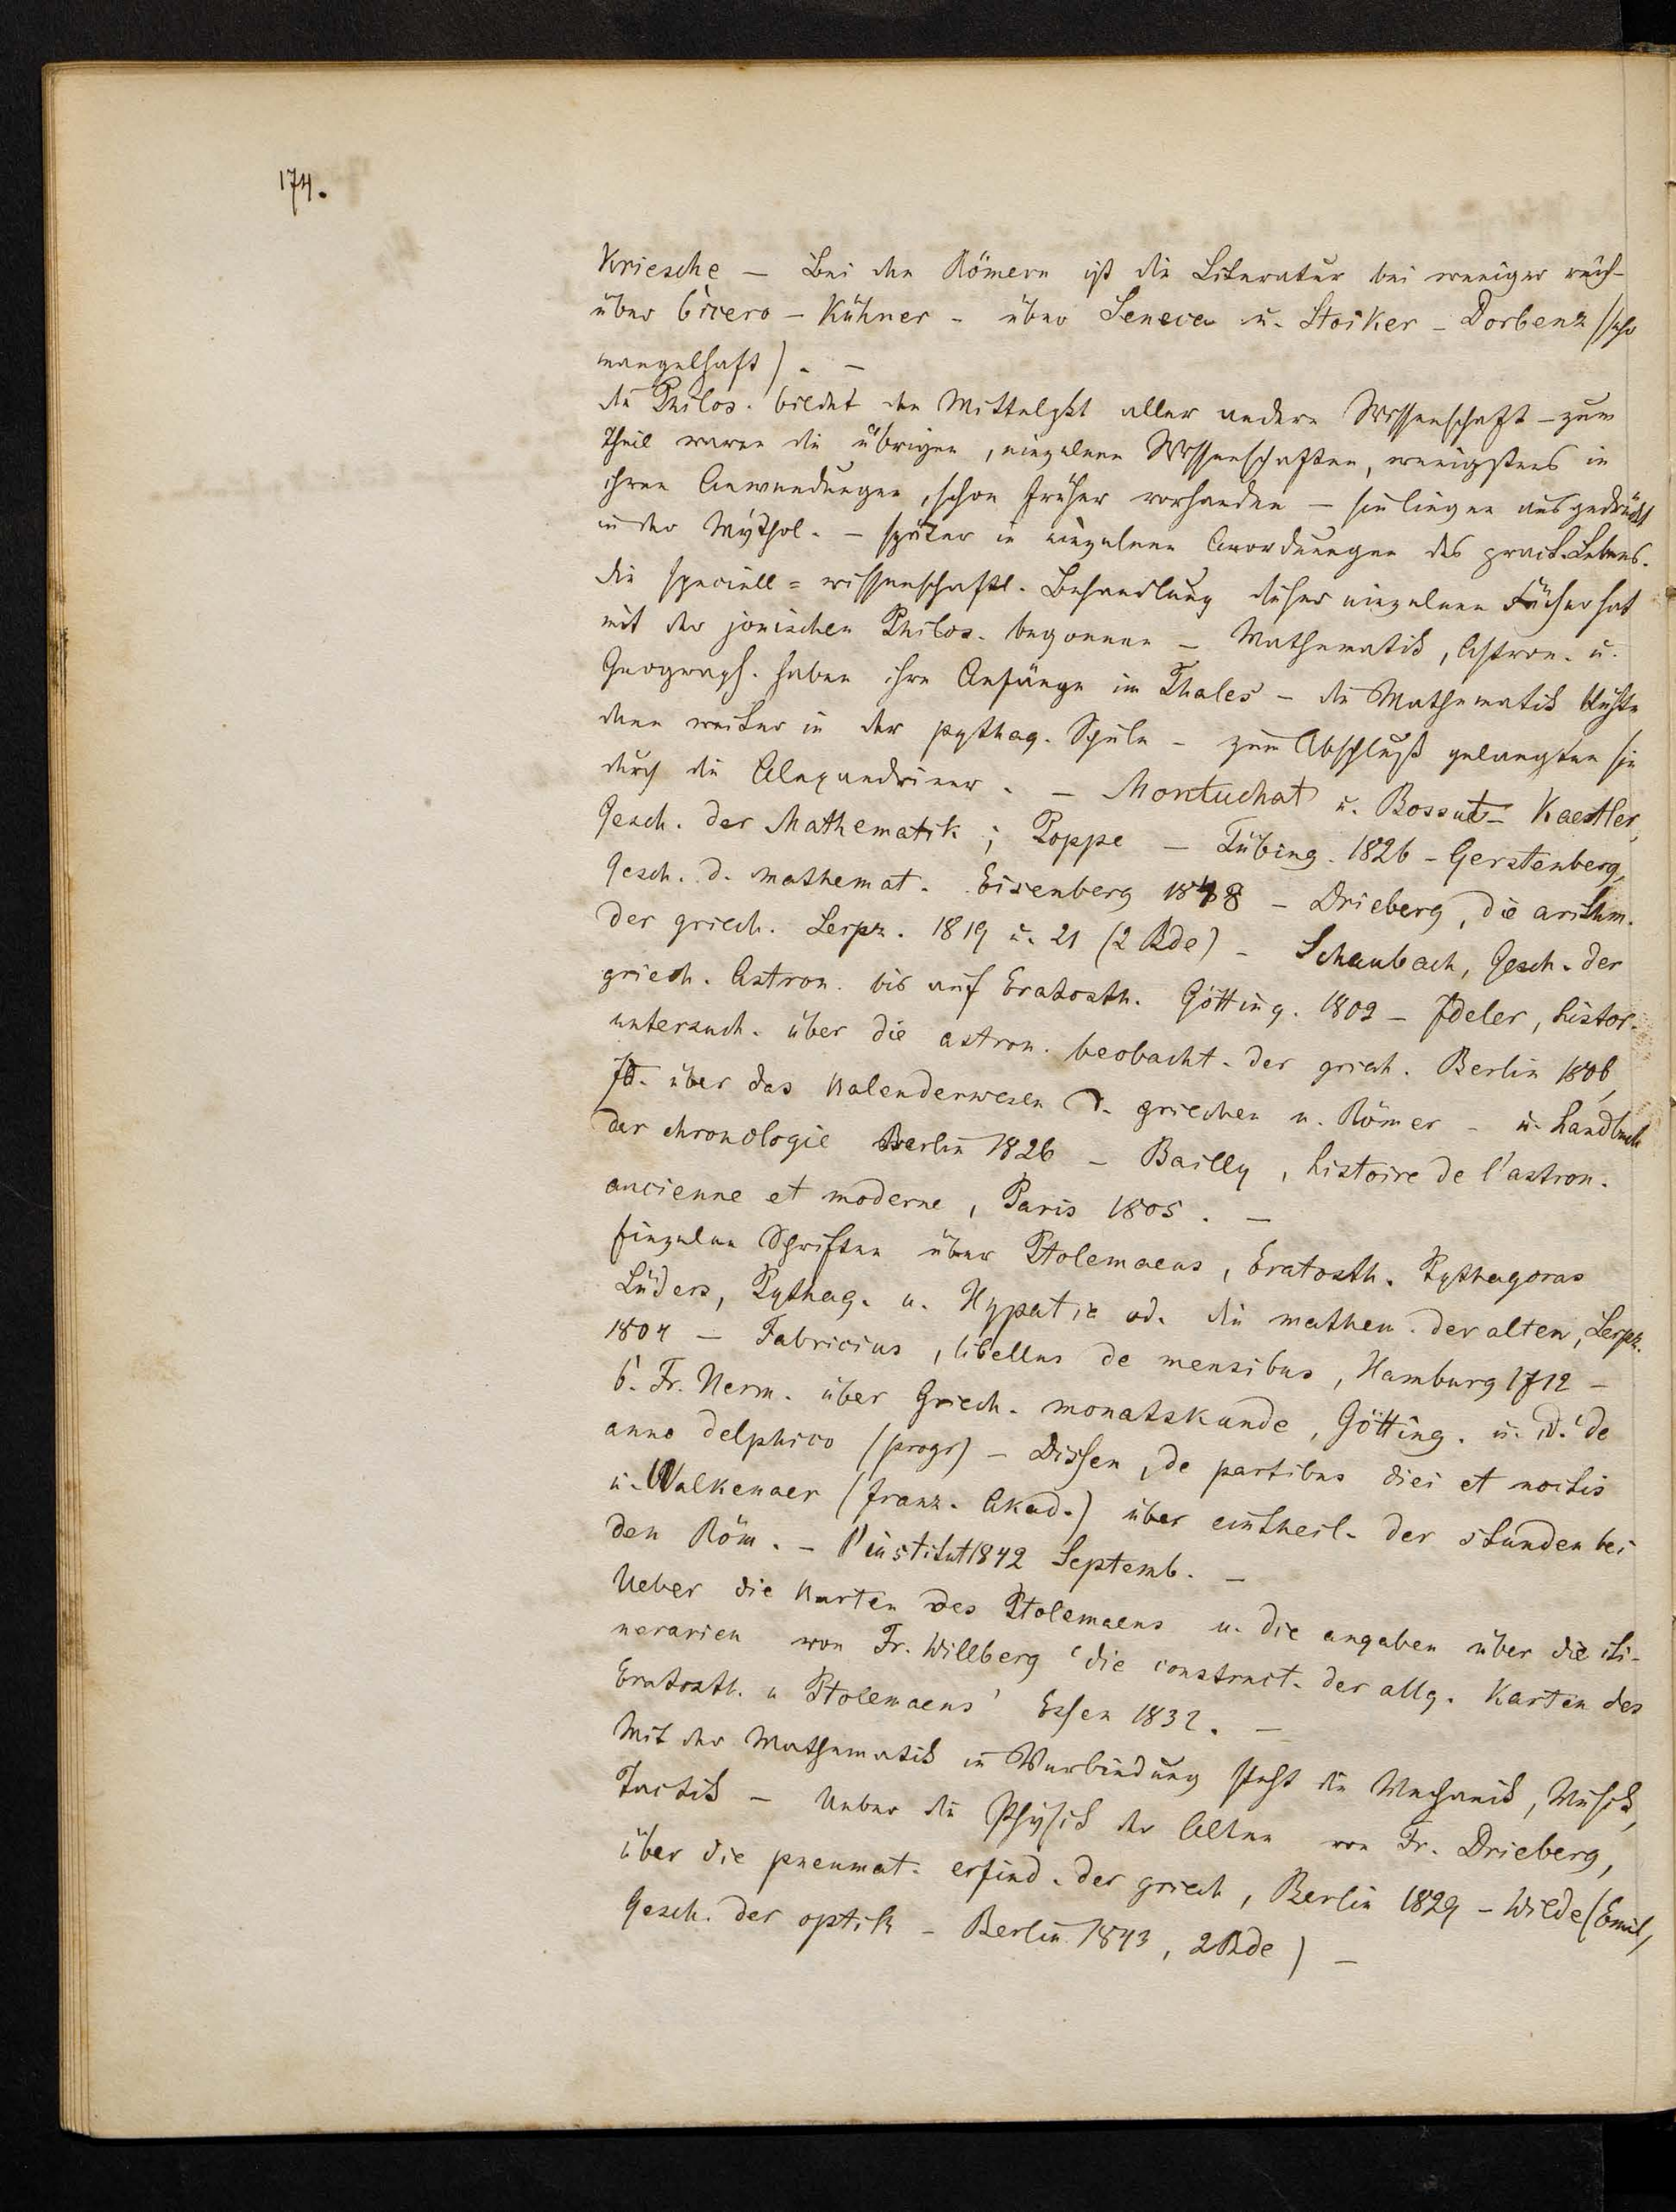 174.
Kriesche — Bei den Römern ist die Literatur bei weniger reich-
über Cicero – Kühner – über Seneca u. Stoiker – Dorbenz (sehr
mangelhaft). –
die Philos. bildet den Mittelpkt aller andern Wissenschaft – zum
Theil waren die übrigen, einzelnen Wissenschaften, wenigstens in
ihren Anwendungen, schon früher vorhanden – sie liegen ausgedrückt
in der Mythol. – später in einzelnen Anordnungen des pract. Lebens.
die speciell = wissenschaftl. Behandlung dieser einzelnen Fächer hat
mit der jonischen Philos. begonnen – Mathematik, Astron. u.
Geograph. haben ihre Anfänge im Thales – die Mathematik blühte
dann weiter in der pythag. Schule – zum Abschluß gelangten sie
durch die Alexandriner. – Montuchat u. Bossut – Kaestler,
Gesch. der Mathematik; Poppe – Tübing. 1826 – Gerstenberg,
Gesch. d. mathemat. Eisenberg 18 8 – Drieberg, die arithm.
der griech. Leipz. 1819 u. 21 (2 Bde) – Schaubach, Gesch. der
griech. Astron. bis auf Eratosth. Götting. 1802 – Jdeler, histor.
untersuch. über die astron. beobacht. der griech. Berlin 1806,
Jd. über das Kalenderwesen d. griechen u. Römer – u. handbuch
der chronologie Berlin 1826 – Bailly, histoire de l'astron.
ancienne et moderne, Paris 1805. –
Einzelne Schriften über Ptolemaeus, Eratosth. Pythagoras
Lüders, Pythag. u. Hypatia od. die mathem. der alten, Leipz.
1809 – Fabricius, libellus de mensibus, Hamburg 1712 –
C. Fr. Herm. über Griech. monatskunde, Götting. u. id. 'de
anno delphico (progr) – Dissen, de partibus diei et noctis
u. Walkenaer (franz. Akad.) über eintheil. der stunden bei
den Röm. – l'institut 1842 Septemb. –
Ueber die Karten des Ptolemaeus u. die angaben über die iti-
nerarien von Fr. Willberg 'die construct. der allg. Karten des
Eratosth. u Ptolemaeus' Essen 1832. –
Mit der Mathematik in Verbindung steht die Mechanik, Musik,
Tactik – Ueber die Physik der Alten von Fr. Drieberg,
über die pneumat. erfind. der griech, Berlin 1829 – Wilde (Emil,
Gesch. der optik – Berlin 1843, 2 Bde) –